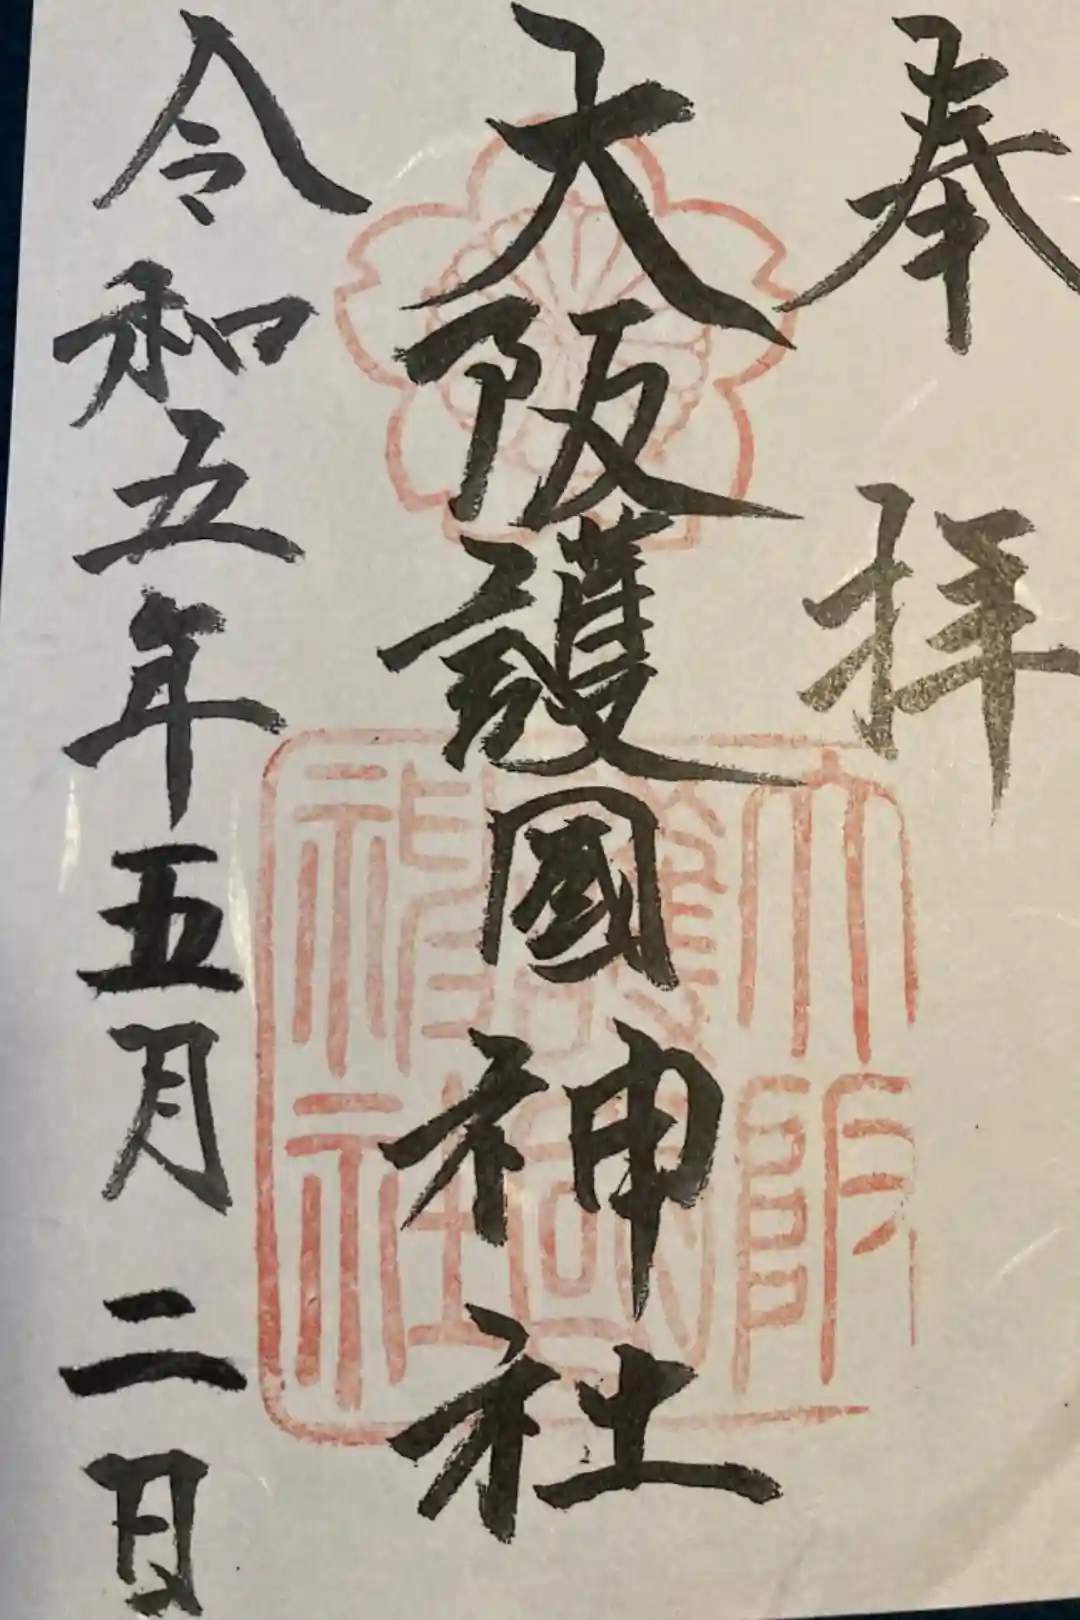 奉拝
大阪護國神社
令和五年五月二日
大阪
護國
神社